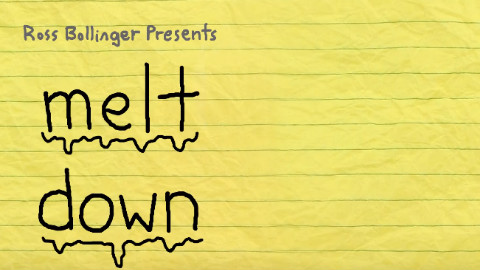 Ross Bollinger Presents
melt
down